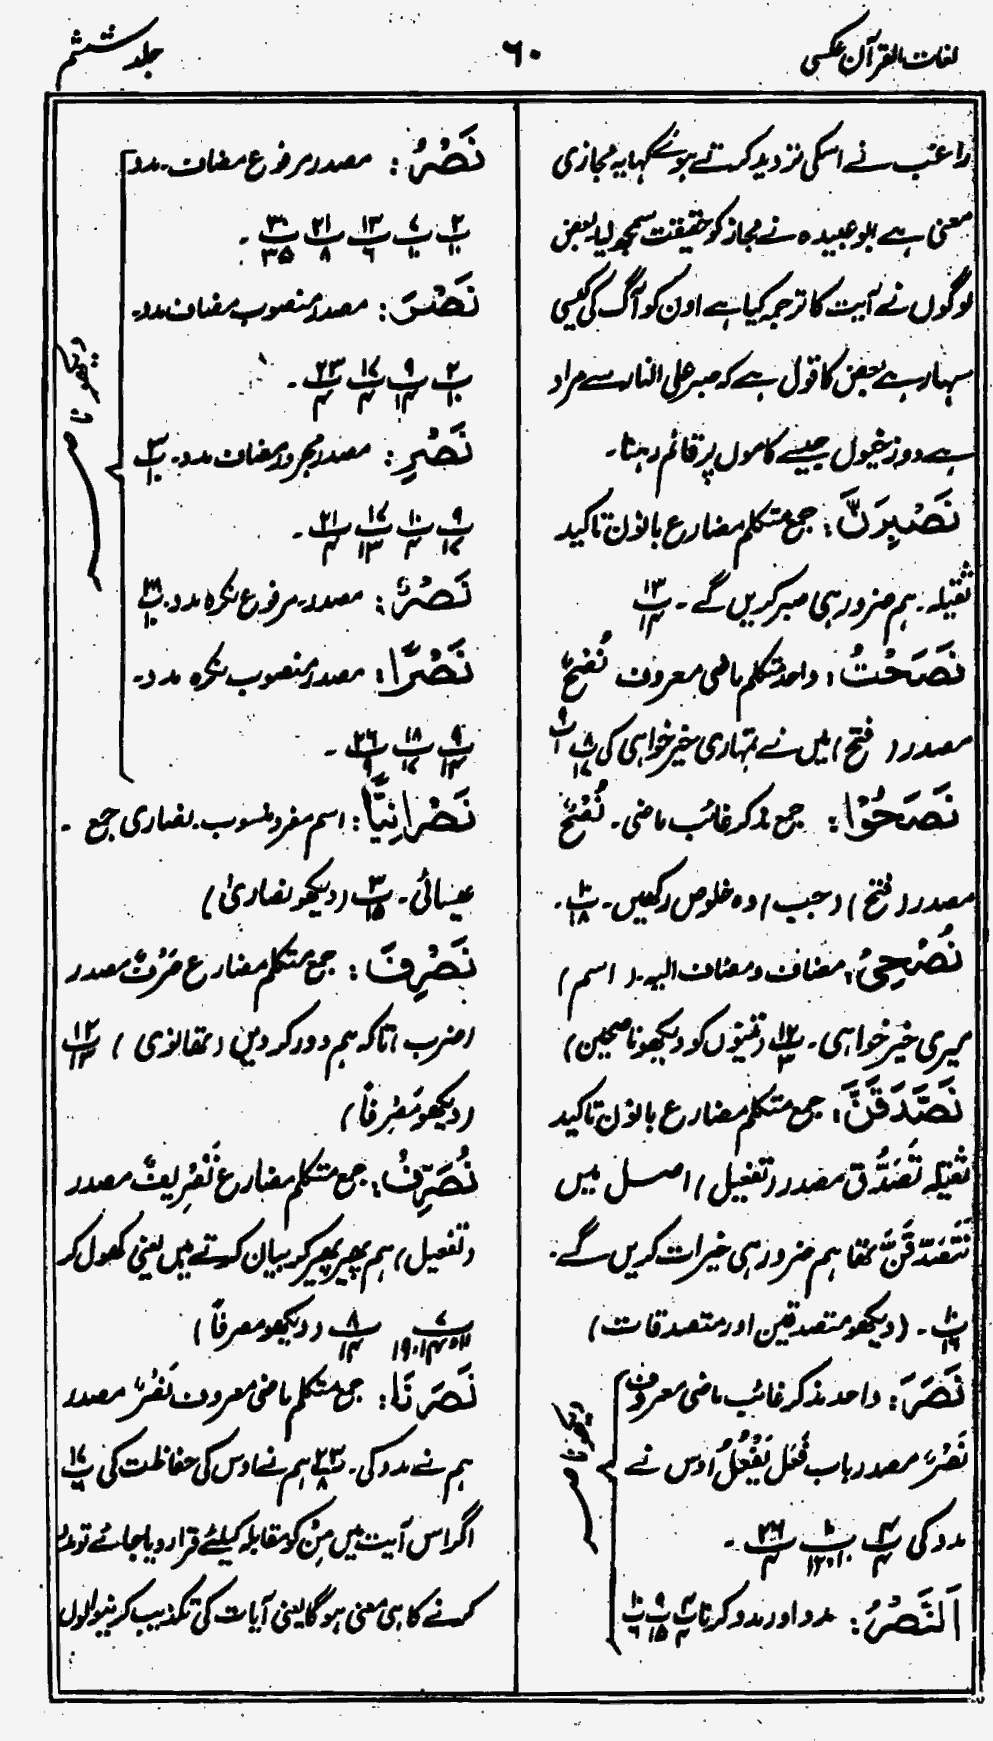 لغات القرآن عکسی
۶۰
جلد ششم
راغب نے اسکی تردید کرتے ہوئے کہا یہ مجازی
معنی ہے ابوعبیدہ نے مجاز کو حقیقت سمجھ لیا بعض
لوگوں نے آیت کا ترجمہ کیا ہے اون کو آگ کی کیسی
سہار ہے بعض کا قول ہے کہ صبر علی النار سے مراد
ہے دوزخیوں جیسے کاموں پر قائم رہنا۔
نَصْبِرَنَّ: جمع متکلم مضارع بانون تاکید
ثقیلہ۔ ہم ضرور ہی صبر کریں گے۔ ۱۳/۱۴
نَصَحْتُ: واحد متکلم ماضی معروف نُصْحٌ
مصدر (فتح) میں نے تمہاری خیر خواہی کی ۸/۱۷ ۹/۱
نَصَحُوْا: جمع مذکر غائب ماضی۔ نُصْحٌ
مصدر (فتح) (جب) وہ خلوص رکھیں۔ ۱۰/۱۸۔
نُصْحِیْ: مضاف و مضاف الیہ۔ (اسم)
میری خیر خواہی۔ ۱۲/۳ (تینوں کو دیکھو ناصحین)
نَصَّدَّقَنَّ: جمع متکلم مضارع بانون تاکید
ثقیلہ تَصَدُّق مصدر (تفعیل) اصل میں
نَتَصَدَّقَنَّ تھا ہم ضرور ہی خیرات کریں گے۔
۱۰/۱۶۔ (دیکھو متصدقین اور متصدقات)
نَصَرَ: واحد مذکر غائب ماضی معروف
نَصْرٌ مصدر باب فَعَلَ یَفْعُلُ اوس نے
مدد کی ۴/۴ ۱۰/۱۲،۱۰ ۲۶/۴۔
اَلنَّصْرُ: مدد اور مدد کرنا ۴/۴ ۹/۱۵ ۱۰/۶
دیکھو ناصر
نَصْرُ: مصدر مرفوع مضاف۔ مدد
۲/۱۰ ۷/۱۰ ۱۳/۶ ۲۱/۸ ۳۰/۳۵۔
نَصْرَ: مصدر منصوب مضاف مدد۔
۲/۱۰ ۹/۱۴ ۱۷/۴ ۲۳/۴۔
نَصْرِ: مصدر مجرور مضاف مدد۔ ۳/۱۰
۹/۱۷ ۱۰/۴ ۱۷/۱۳ ۲۱/۴۔
نَصْرٌ: مصدر۔ مرفوع نکرہ مدد۔ ۳/۱۰
نَصْرًا: مصدر منصوب نکرہ مدد۔
۹/۱۴ ۱۸/۱۷ ۲۶/۹۔
دیکھو ناصر
نَصْرَانِیًّا: اسم مفرد منسوب۔ نصاریٰ جمع۔
عیسائی۔ ۳/۱۵ (دیکھو نصاریٰ)
نَصْرِفَ: جمع متکلم مضارع صَرْفٌ مصدر
(ضرب) تاکہ ہم دور کر دیں (تھانوی) ۱۲/۱۳
(دیکھو مَصْرِفاً)
نُصَرِّفُ: جمع متکلم مضارع تَصْرِیفٌ مصدر
(تفعیل) ہم پھیر پھیر کر بیان کرتے ہیں یعنی کھول کر
۷/۱۱،۱۴،۱۹ ۸/۱۴ (دیکھو مصرفاً)
نَصَرْنَا: جمع متکلم ماضی معروف نَصْرٌ مصدر
ہم نے مدد کی۔ ۲۳/۸ ہم نے اوس کی حفاظت کی ۱۷/۶
اگر اس آیت میں مِنْ کو مقابلہ کیلئے قرار دیا جائے تو مدد
کرنے کا ہی معنی ہوگا یعنی آیات کی تکذیب کرنیوالوں